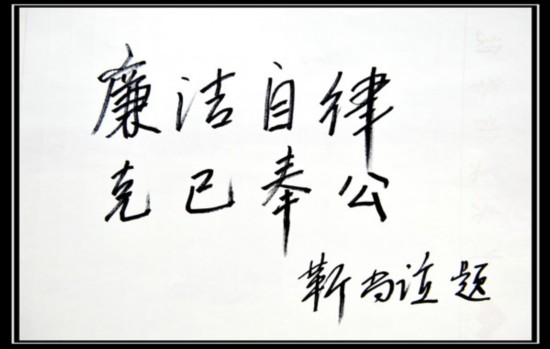 廉洁自律
克己奉公
靳尚谊题